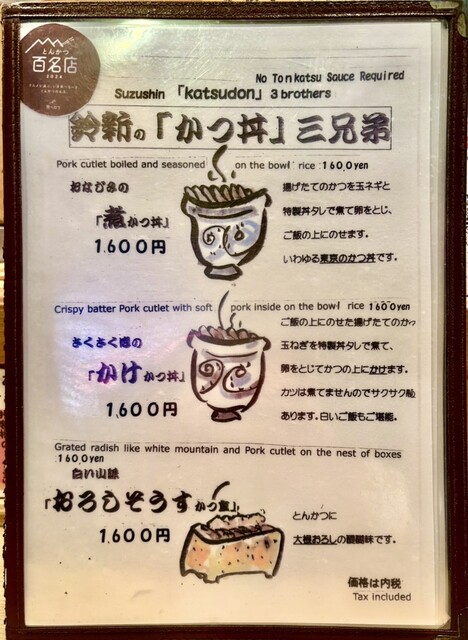 とんかつ
百名店
2024
No Tonkatsu Sauce Required
Suzushin 「katsudon」 3 brothers
鈴新の「かつ丼」三兄弟
Pork cutlet boiled and seasoned on the bowl rice :1600yen
おなじみの
「煮かつ丼」
1.600円
揚げたてのかつを玉ネギと
特製丼タレで煮て卵をとじ、
ご飯の上にのせます。
いわゆる東京のかつ丼です。
Crispy batter Pork cutlet with soft pork inside on the bowl rice 1600yen
さくさく感の
「かけかつ丼」
1,600円
ご飯の上にのせた揚げたてのかつ
玉ねぎを特製丼タレで煮て、
卵をとじてかつの上にかけます。
カツは煮てませんのでサクサク
あります。白いご飯もご堪能。
Grated radish like white mountain and Pork cutlet on the nest of boxes
1600yen
白い山脈
「おろしそうすかつ重」
1.600円
とんかつに
大根おろしの醍醐味です。
価格は内税
Tax included